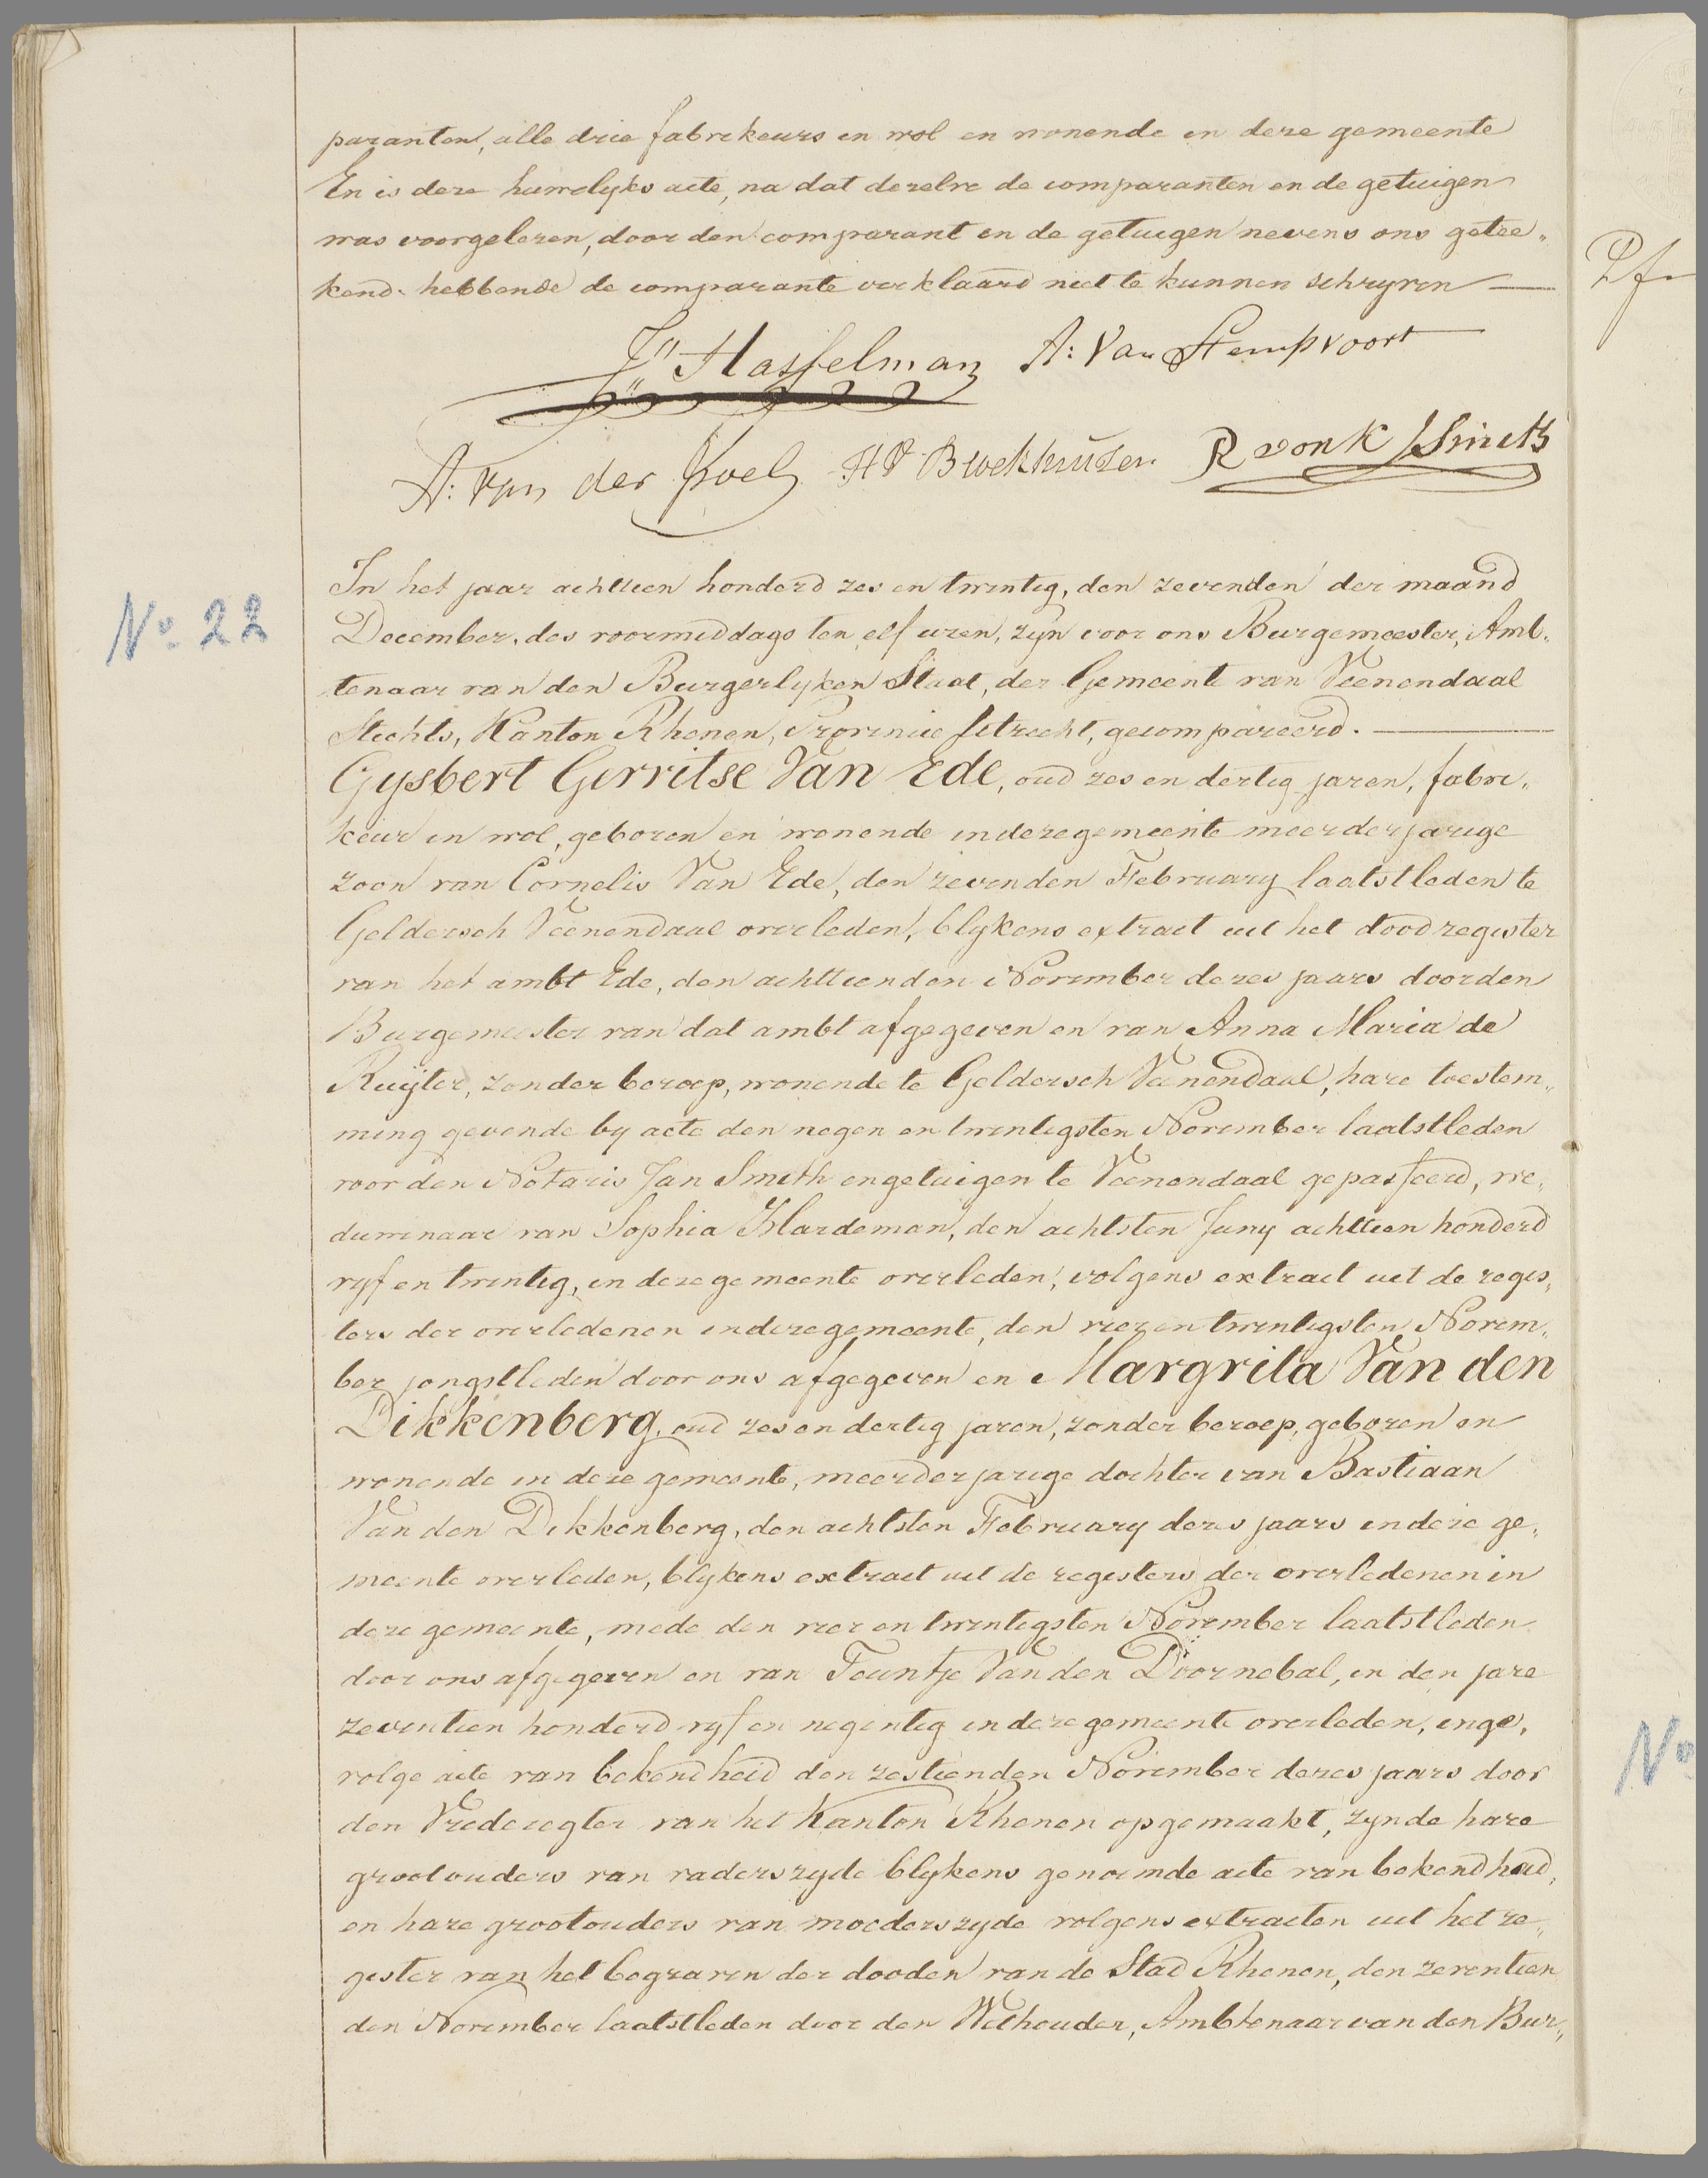 paranten, alle drie fabrikeurs in wol en wonende in deze gemeente
En is deze huwelyks acte, na dat dezelve de comparanten en de getuigen
was voorgelezen, door den comparant en de getuigen nevens ons getee„
kend. hebbende de comparante verklaard niet te kunnen schryven —
Hasselman A: Van Stempvoort
A: van der Poel HV Broekhuizen R vonk JSmith
No. 22
In het jaar achttien honderd zes en twintig, den zevenden der maand
December, des voormiddags ten elf uren, zyn voor ons Burgemeester, Amb„
tenaar van den Burgerlyken Staat, der Gemeente van Veenendaal
Stichts, Kanton Rhenen, Provincie Utrecht, gecompareerd. —
Gysbert Gerritse Van Ede, oud zes en dertig jaren, fabri„
keur in wol, geboren en wonende in deze gemeente meerderjarige
zoon van Cornelis Van Ede, den zevenden February laatstleden te
Geldersch Veenendaal overleden, blykens extract uit het doodregister
van het ambt Ede, den achttienden November dezes jaars door den
Burgemeester van dat ambt afgegeven en van Anna Maria de
Ruijter, zonder beroep, wonende te Geldersch Veenendaal, hare toestem„
ming gevende by acte den negen en twintigsten November laatstleden
voor den Notaris Jan Smith en getuigen te Veenendaal gepasseerd, we„
duwenaar van Sophia Hardeman, den achtsten Juny achttien honderd
vyf en twintig, in deze gemeente overleden, volgens extract uit de regis„
ters der overledenen in deze gemeente, den vier en twintigsten Novem„
ber jongstleden door ons afgegeven en Margrita Van den
Dikkenberg, oud zes en dertig jaren, zonder beroep, geboren en
wonende in deze gemeente, meerderjarige dochter van Bastiaan
Van den Dikkenberg, den achtsten February dezes jaars in deze ge„
meente overleden, blykens extract uit de registers der overledenen in
deze gemeente, mede den vier en twintigsten November laatstleden
door ons afgegeven en van Teuntje Van den Doornebal, in den jare
zeventien honderd vyf en negentig in deze gemeente overleden, inge„
volge acte van bekendheid den zestienden November dezes jaars door
den Vrederegter van het Kanton Rhenen opgemaakt, zynde hare
grootouders van vaders zyde blykens genoemde acte van bekendheid,
en hare grootouders van moeders zyde volgens extracten uit het re„
gister van het begraven der dooden van de Stad Rhenen, den zeventien
den November laatstleden door den Wethouder, Ambtenaar van den Bur„
No